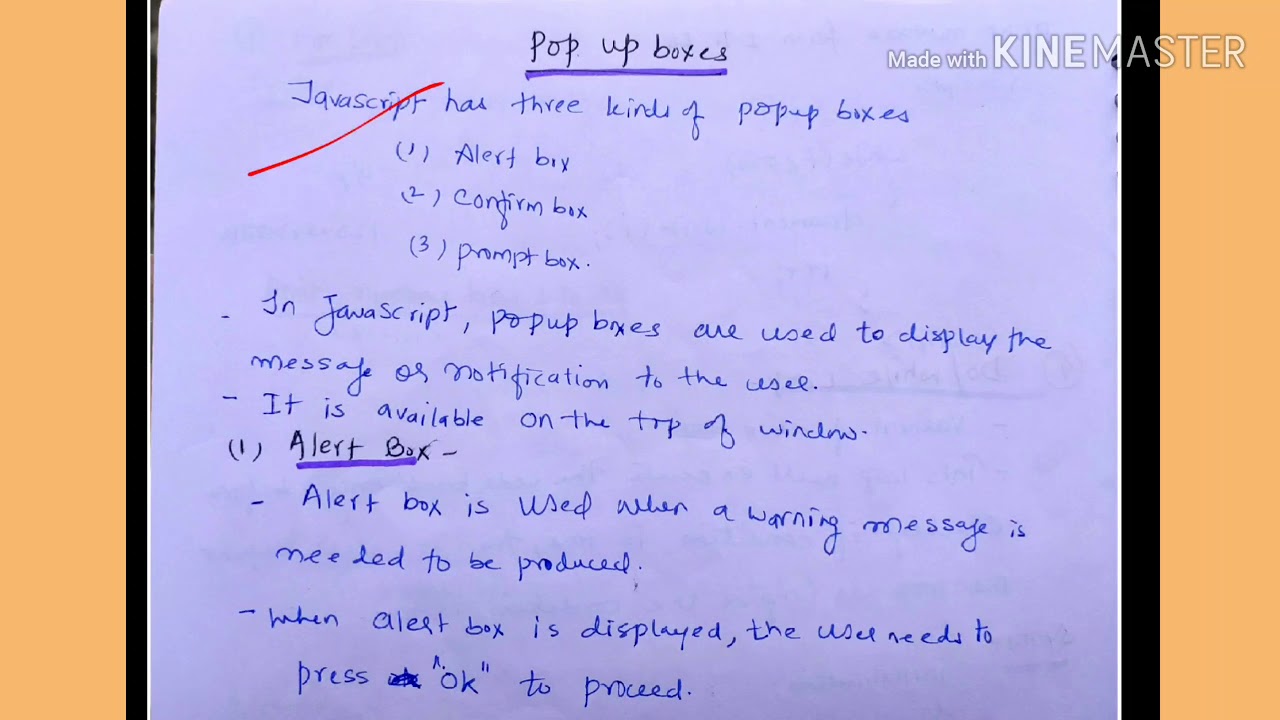 Made with KINEMASTER
Pop up boxes
Javascript has three kinds of popup boxes
(1) Alert box
(2) Confirm box
(3) prompt box.
- In Javascript, popup boxes are used to display the
message or notification to the user.
- It is available on the top of window.
(1) Alert Box -
- Alert box is used when a warning message is
needed to be produced.
- When alert box is displayed, the user needs to
press "OK" to proceed.